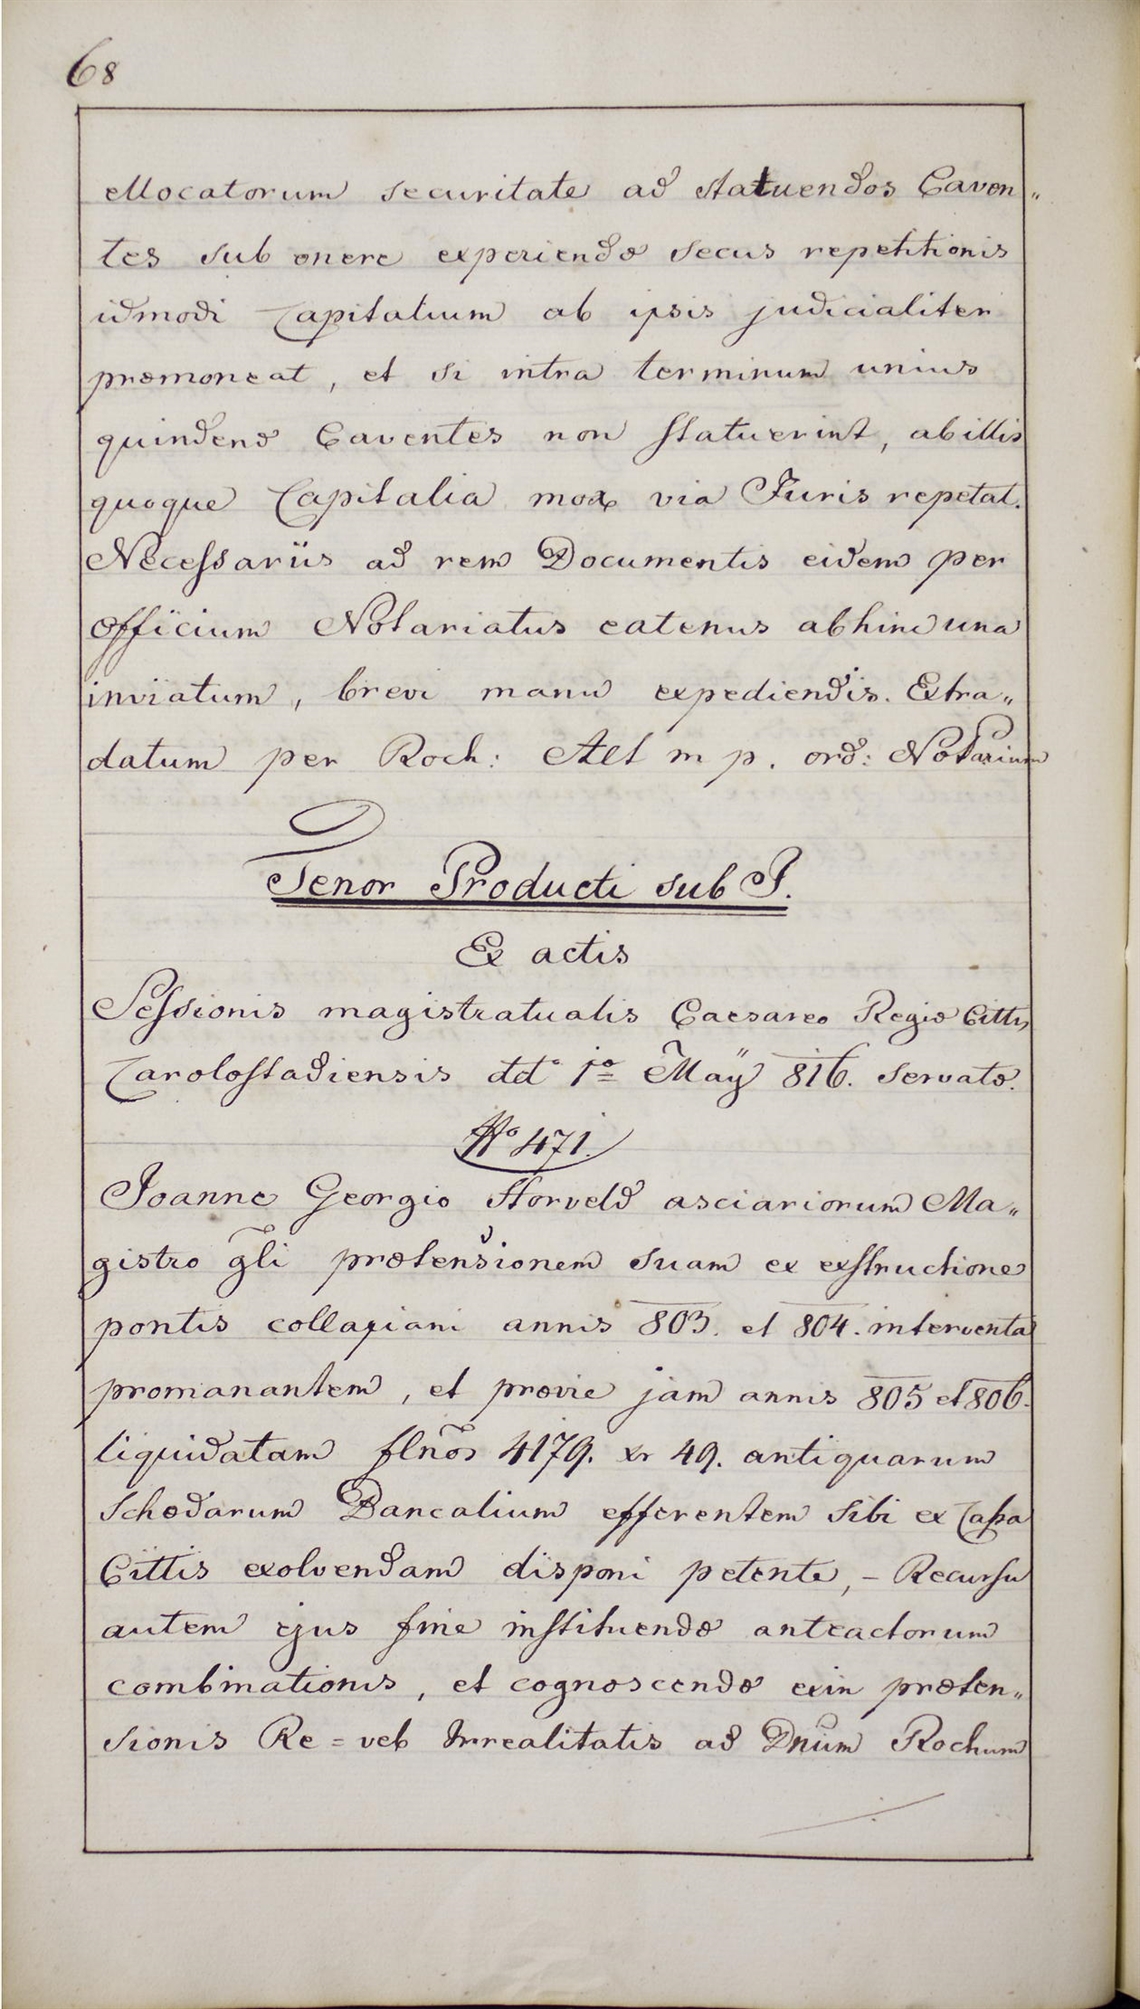 68
ellocatorum securitate ad statuendos Caven„
tes sub onere experiendæ secus repetitionis
idmodi Capitalium ab ipsis judicialiter
præmoneat, et si intra terminum unius
quindenæ Caventes non statuerint, ab illis
quoque Capitalia mox via Juris repetat.
Necessariis ad rem Documentis eidem per
officium Notariatus eatenus abhinc una
inviatum, brevi manu expediendis. Extra„
datum per Roch: Ael m p. ord: Notarium
Tenor Producti sub J.
Ex actis
Sessionis magistratualis Caesareo Regiæ Cittis
Carolostadiensis ddº 1º May 816. servatæ.
Nº 471.
Joanne Georgio Horveld asciariorum Ma„
gistro gli prætensionem suam ex exstructione
pontis collapiani annis 803. et 804. interventa
promanantem, et prævie jam annis 805 et 806.
liquidatam flnos 4179. xr 49. antiquarum
Schedarum Bancalium efferentem sibi ex Cassa
Cittis exolvendam disponi petente, – Recursu
autem ejus fine instituendæ anteactorum
combinationis, et cognoscendæ exin præten„
sionis Re = vel Irrealitatis ad Dnum Rochum